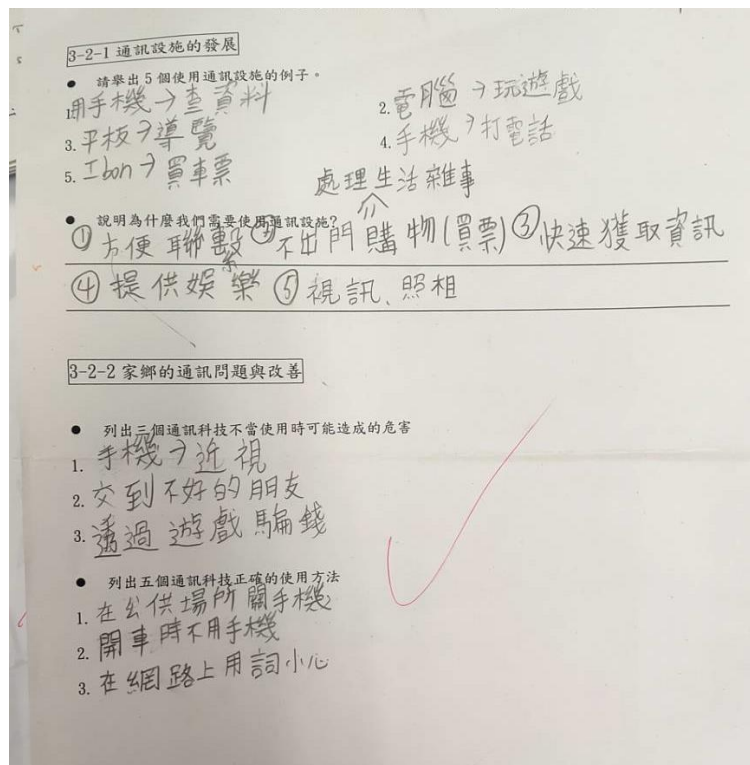 3-2-1 通訊設施的發展
● 請舉出 5 個使用通訊設施的例子。
1. 用手機→查資料
2. 電腦→玩遊戲
3. 平板→導覽
4. 手機→打電話
5. Ibon→買車票
處理生活雜事
● 說明為什麼我們需要使用通訊設施?
①方便聯繫②不出門購物(買票)③快速獲取資訊
④提供娛樂⑤視訊、照相
3-2-2 家鄉的通訊問題與改善
● 列出三個通訊科技不當使用時可能造成的危害
1. 手機→近視
2. 交到不好的朋友
3. 透過遊戲騙錢
● 列出五個通訊科技正確的使用方法
1. 在公供場所關手機
2. 開車時不用手機
3. 在網路上用詞小心